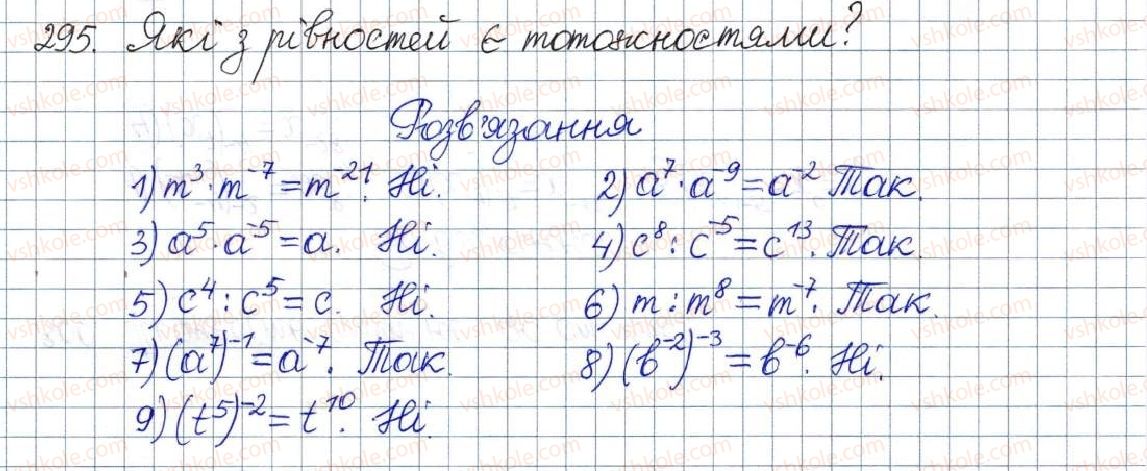 295. Які з рівностей є тотожностями?
Розв'язання
1) m³·m⁻⁷=m⁻²¹. Ні. 2) a⁷·a⁻⁹=a⁻² Так.
3) a⁵·a⁻⁵=a. Ні. 4) c⁸:c⁻⁵=c¹³. Так.
5) c⁴:c⁵=c. Ні. 6) m:m⁸=m⁻⁷. Так.
7) (a⁷)⁻¹=a⁻⁷. Так. 8) (b⁻²)⁻³=b⁻⁶. Ні.
9) (t⁵)⁻²=t¹⁰. Ні.